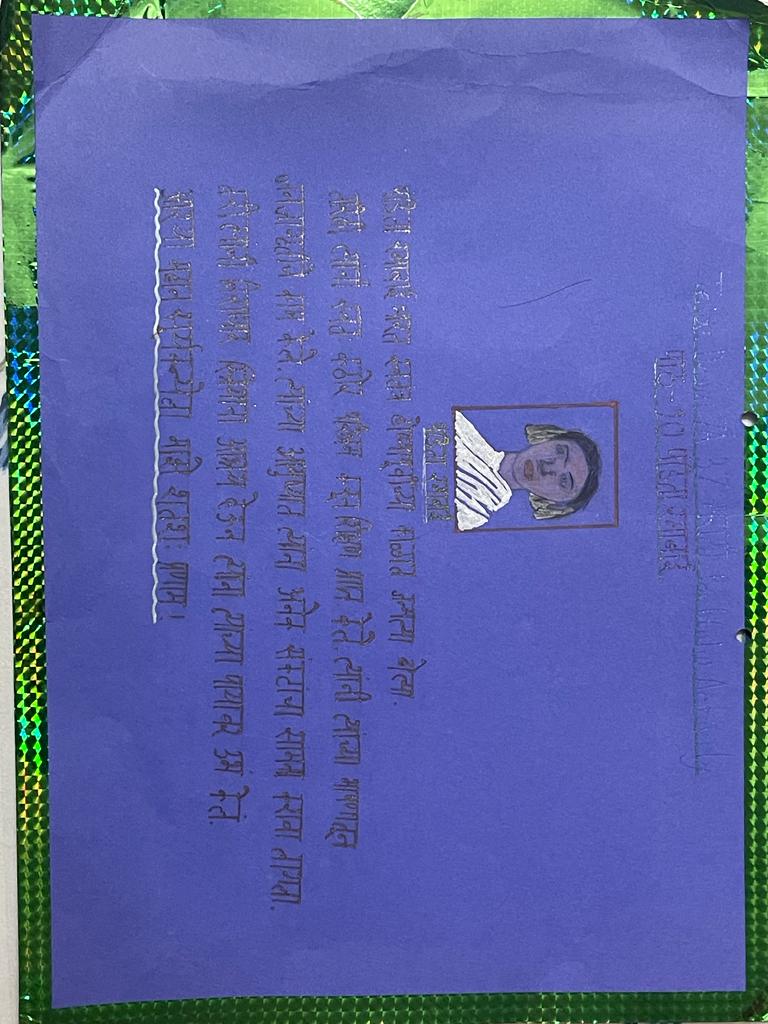 पाठ-१० पंडिता रमाबाई
पंडिता रमाबाई
पंडिता रमाबाई भारत स्वतंत्र होण्यापूर्वीच्या काळात जन्मल्या होत्या.
तरीही त्यांनी स्वतः कठोर परिश्रम करून शिक्षण प्राप्त केले. त्यांनी त्यांच्या भाषणातून
जनजागृतीचे काम केले. त्यांच्या आयुष्यात त्यांना अनेक संकटांचा सामना करावा लागला.
तरी त्यांनी निराधार स्त्रियांना आश्रय देऊन त्यांना त्यांच्या पायावर उभं केलं.
अशा महान सूर्यकन्येला माझे शतशः प्रणाम!